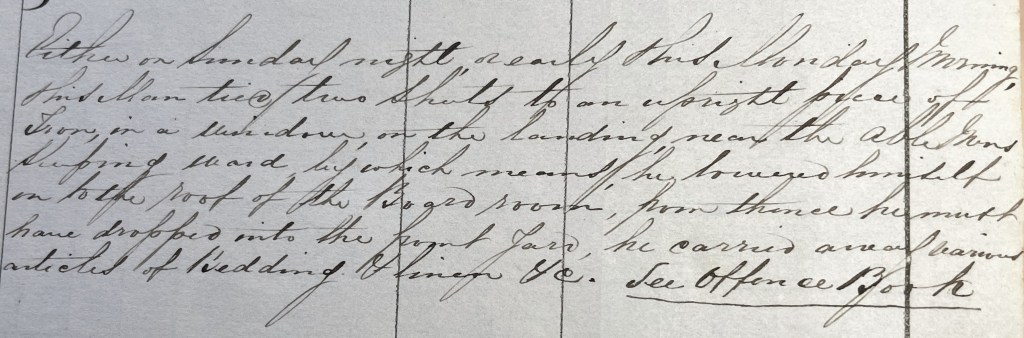 Either on Sunday night, or early this Monday Morning,
this Man tied two Sheets to an upright piece of
Iron, in a window, on the landing, near the Able Mens
Sleeping ward, by which means, he lowered himself
on to the roof of the Board room, from thence he must
have dropped into the front Yard, he carried away various
articles of Bedding & linen &c. See Offence Book